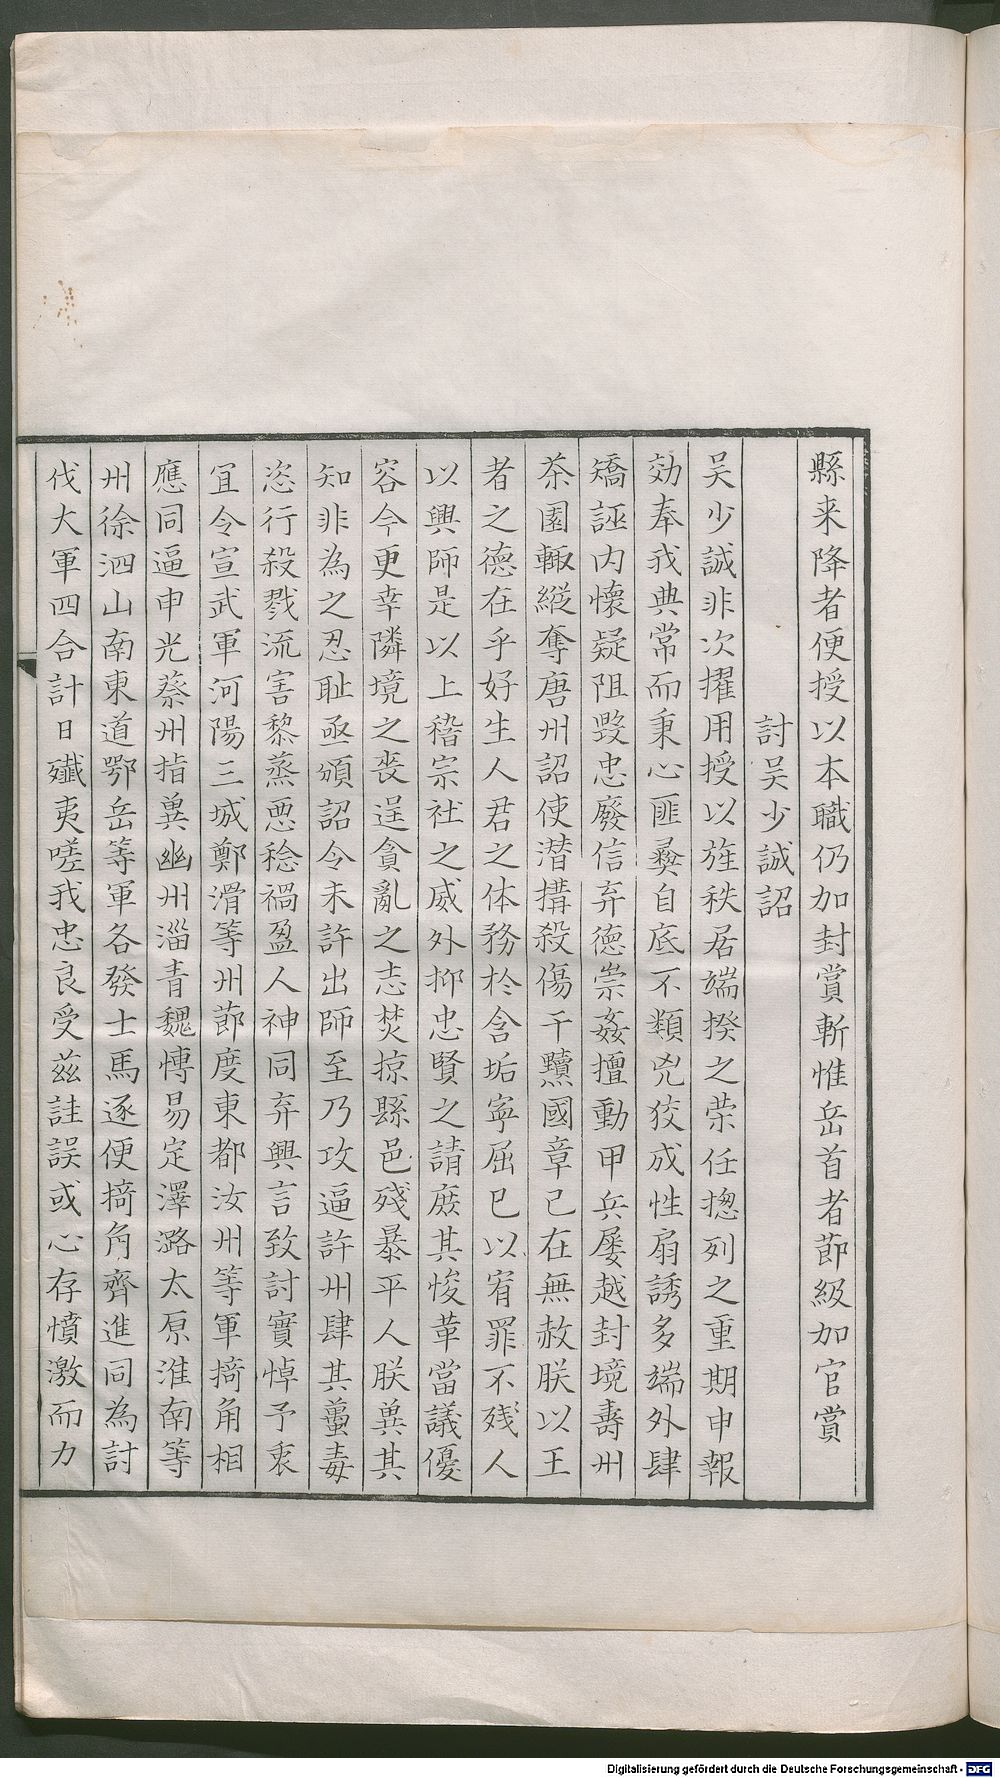 縣来降者便授以本職仍加封賞斬惟岳首者節級加官賞
討吴少誠詔
吴少誠非次擢用授以旌秩居端揆之荣任揔列之重期申報
効奉我典常而秉心匪彝自底不類兇狡成性扇誘多端外肆
矯誣内懷疑阻毁忠廢信弃德崇姦擅動甲兵屡越封境壽州
茶園輙縱奪唐州詔使潜搆殺傷干黷國章已在無赦朕以王
者之德在乎好生人君之体務於含垢寧屈巳以宥罪不殘人
以興師是以上稽宗社之威外抑忠賢之請庶其悛革當議優
容今更幸隣境之丧逞貪亂之志焚掠縣邑殘暴平人朕兾其
知非為之忍耻亟頒詔令未許出師至乃攻逼許州肆其蠆毒
恣行殺戮流害黎蒸悪稔禍盈人神同弃興言致討實悼予衷
宜令宣武軍河陽三城鄭滑等州節度東都汝州等軍掎角相
應同逼申光蔡州指兾幽州淄青魏愽易定澤潞太原淮南等
州徐泗山南東道鄂岳等軍各發士馬逐便掎角齊進同為討
伐大軍四合計日殲夷嗟我忠良受茲詿誤或心存憤激而力
Digitalisierung gefördert durch die Deutsche Forschungsgemeinschaft - DFG